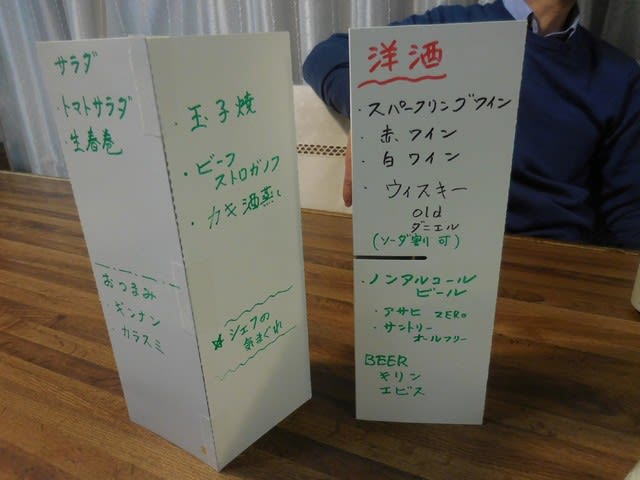 サラダ
・トマトサラダ
・生春巻
おつまみ
・ギンナン
・カラスミ
・玉子焼
・ビーフ
ストロガノフ
・カキ酒蒸し
☆シェフの
気まぐれ
洋酒
・スパークリングワイン
・赤ワイン
・白ワイン
・ウィスキー
old
ダニエル
(ソーダ割可)
・ノンアルコール
ビール
・アサヒ ZERO
・サントリー
オールフリー
BEER
キリン
エビス